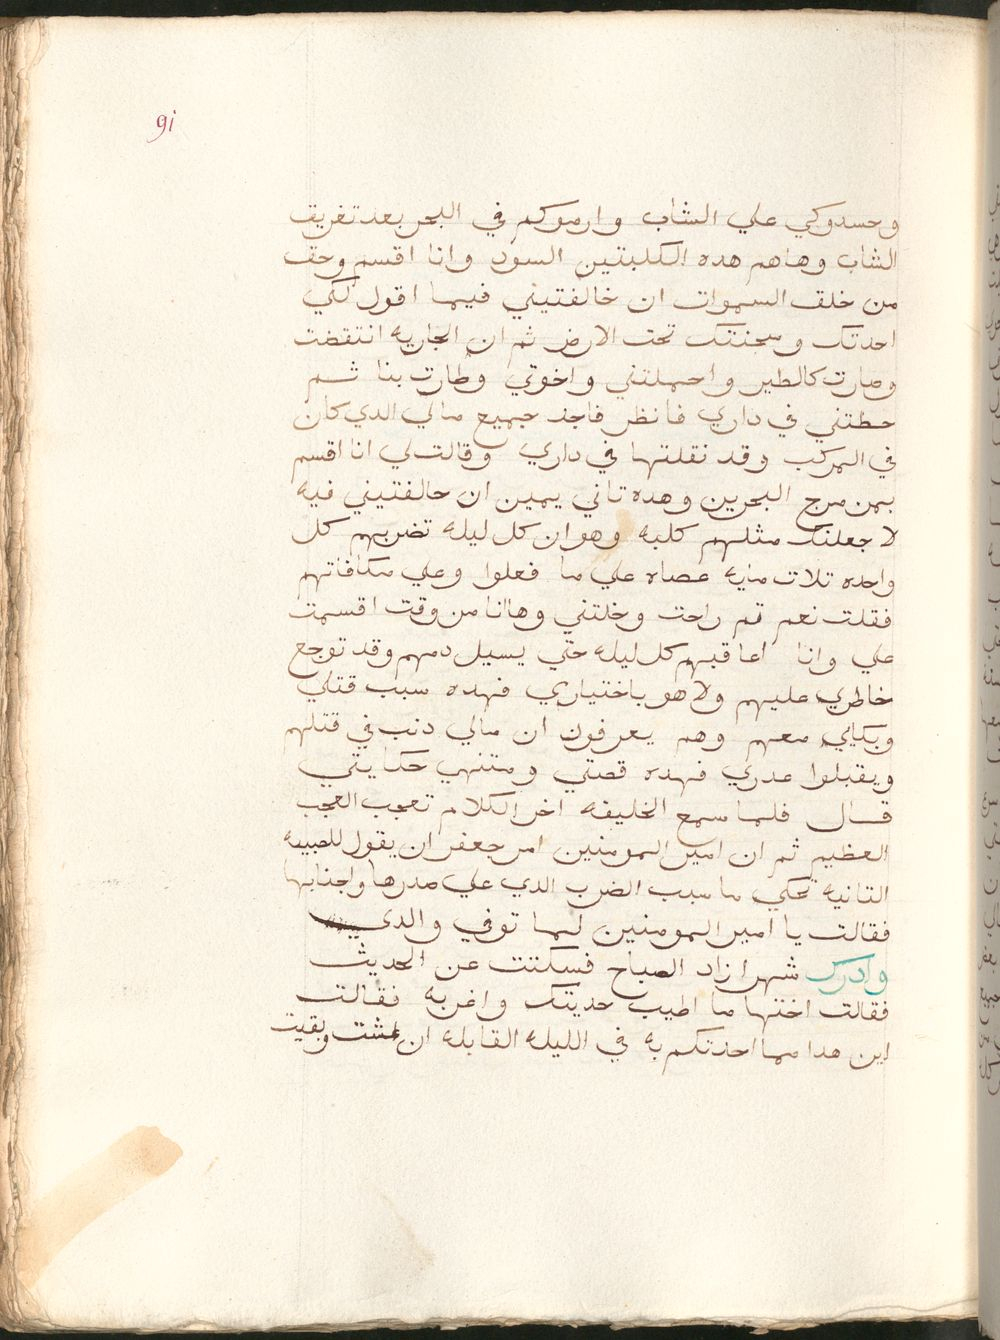 91
وحسدوكي علي الشاب وارموكم في البحر بعد تغريق
الشاب وهاهم هده الكلبتين السود وانا اقسم وحق
من خلق السموات ان خالفتيني فيما اقول لكي
احدتك وسجنتك تحت الارض ثم ان الجاريه انتقضت
وصارت كالطير واحملتني واخوتي وطارت بنا ثم
حطتني في داري فانظر فاجد جميع مالي الدي كان
في المركب وقد نقلتها في داري وقالت لي انا اقسم
بمن مرج البحرين وهده تاني يمين ان حالفتيني فيه
لاجعلنك مثلهم كلبه وهو ان كل ليله تضربهم كل
واحده تلات مايه عصاه علي ما فعلوا وعلي مكافاتهم
فقلت نعم تم راحت وخلتني وهاانا من وقت اقسمت
علي وانا اعاقبهم كل ليله حتي يسيل دمهم وقد توجع
خاطري عليهم ولا هو باختياري فهده سبب قتلي
وبكايي معهم وهم يعرفون ان مالي دنب في قتلهم
ويقبلوا عدري فهده قصتي ومتنهي حكايتي
قال فلما سمع الخليفه اخر الكلام تعجب العجب
العظيم ثم ان امير المومنين امر جعفر ان يقول للصبيه
التانيه تحكي ما سبب الضرب الدي علي صدرها واجنابها
فقالت يا امير المومنين لما توفي والدي
وادرك شهرازاد الصباح فسكتت عن الحديث
فقالت اختها ما اطيب حديتك واغربه فقالت
اين هدا مما احدتكم به في الليله القابله ان عشت وبقيت